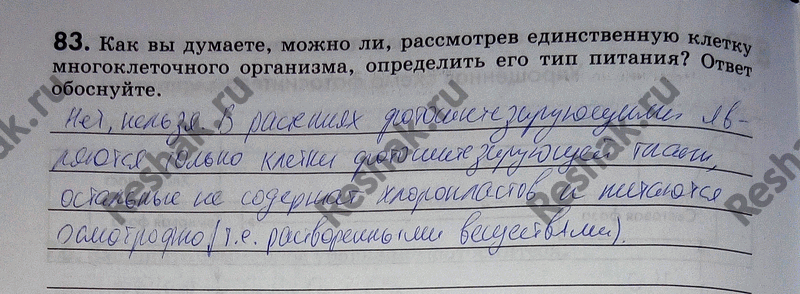 83. Как вы думаете, можно ли, рассмотрев единственную клетку
многоклеточного организма, определить его тип питания? Ответ
обоснуйте.
Нет, нельзя В растениях фотосинтезирующими яв-
ляются только клетки фотосинтезирующей ткани,
остальные не содержат хлоропластов и питаются
осмотрофно (т.е. растворенными веществами).
Reshak.ru
Reshak.ru
Reshak.ru
Reshak.ru
Reshak.ru
Reshak.ru